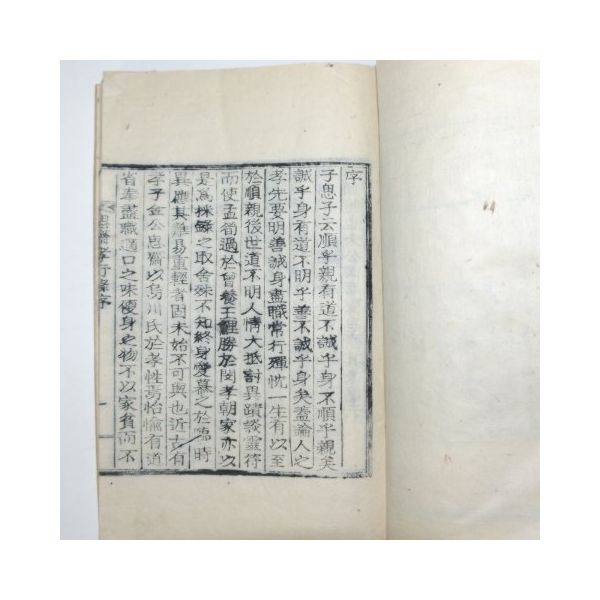 序
子思子云順乎親有道不誠乎身不順乎親矣
誠乎身有道不明乎善不誠乎身矣蓋論人之
孝先要明善誠身盡職常行 忱一生有以至
於順親後世道不明人情大抵討異蹟談靈符
而使孟 過於曾養王 勝於閔孝朝家亦以
是爲採錄之取舍殊不知終身愛慕之於臨時
異應其難易重輕者固未始不可與也近古有
孝子金公思齋以烏川氏於孝性焉怡愉有道
省奉盡職適口之味便身之物不以家貧而不
思齋孝行錄序